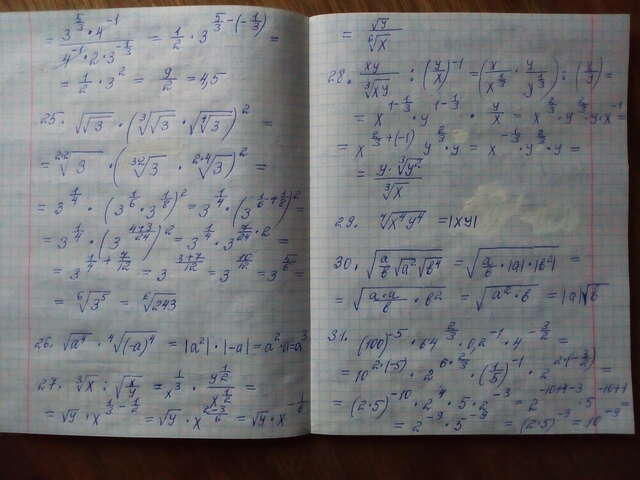 = 3^{5/3} · 4^{-1} / 4^{-1} · 2 · 3^{-1/3} = 1/2 · 3^{5/3 - (-1/3)} =
= 1/2 · 3^2 = 9/2 = 4,5
25. √√3 · (∛√3 · √∜3)^2 =
= ^{2·2}√3 · (^{3·2}√3 · ^{2·4}√3)^2 =
= 3^{1/4} · (3^{1/6} · 3^{1/8})^2 = 3^{1/4} · (3^{1/6 + 1/8})^2 =
= 3^{1/4} · (3^{4+3/24})^2 = 3^{1/4} · 3^{7/24 · 2} =
= 3^{1/4 + 7/12} = 3^{3+7/12} = 3^{10/12} = 3^{5/6} =
= ⁶√3^5 = ⁶√243
26. √a^4 · ∜(-a)^4 = |a^2| · |-a| = a^2 · a = a^3
27. ∛x : √x/y = x^{1/3} · y^{1/2} / x^{1/2} =
= √y · x^{1/3 - 1/2} = √y · x^{2-3/6} = √y · x^{-1/6}
= √y / ⁶√x
28. xy / ∛xy : (y/x)^{-1} = (x / x^{1/3} · y / y^{1/3}) : (x/y) =
= x^{1-1/3} · y^{1-1/3} · y/x = x^{2/3} · y^{2/3} · y · x^{-1} =
= x^{2/3 + (-1)} y^{2/3} · y = x^{-1/3} y^{2/3} · y =
= y · ∛y^2 / ∛x
29. ∜x^4y^4 = |xy|
30. √a/b √a^2 √b^4 = √a/b · |a| · |b^2| =
= √a·a/b · b^2 = √a^2 · b = |a|√b
31. (100)^{-5} · 64^{2/3} · 0,2^{-1} · 4^{-3/2} =
= 10^{2·(-5)} · 2^{6·2/3} · (1/5)^{-1} · 2^{2·(-3/2)} =
= (2·5)^{-10} · 2^4 · 5 · 2^{-3} = 2^{-10+4-3} · 5^{-10+1} =
= 2^{-9} · 5^{-9} = (2·5)^{-9} = 10^{-9}